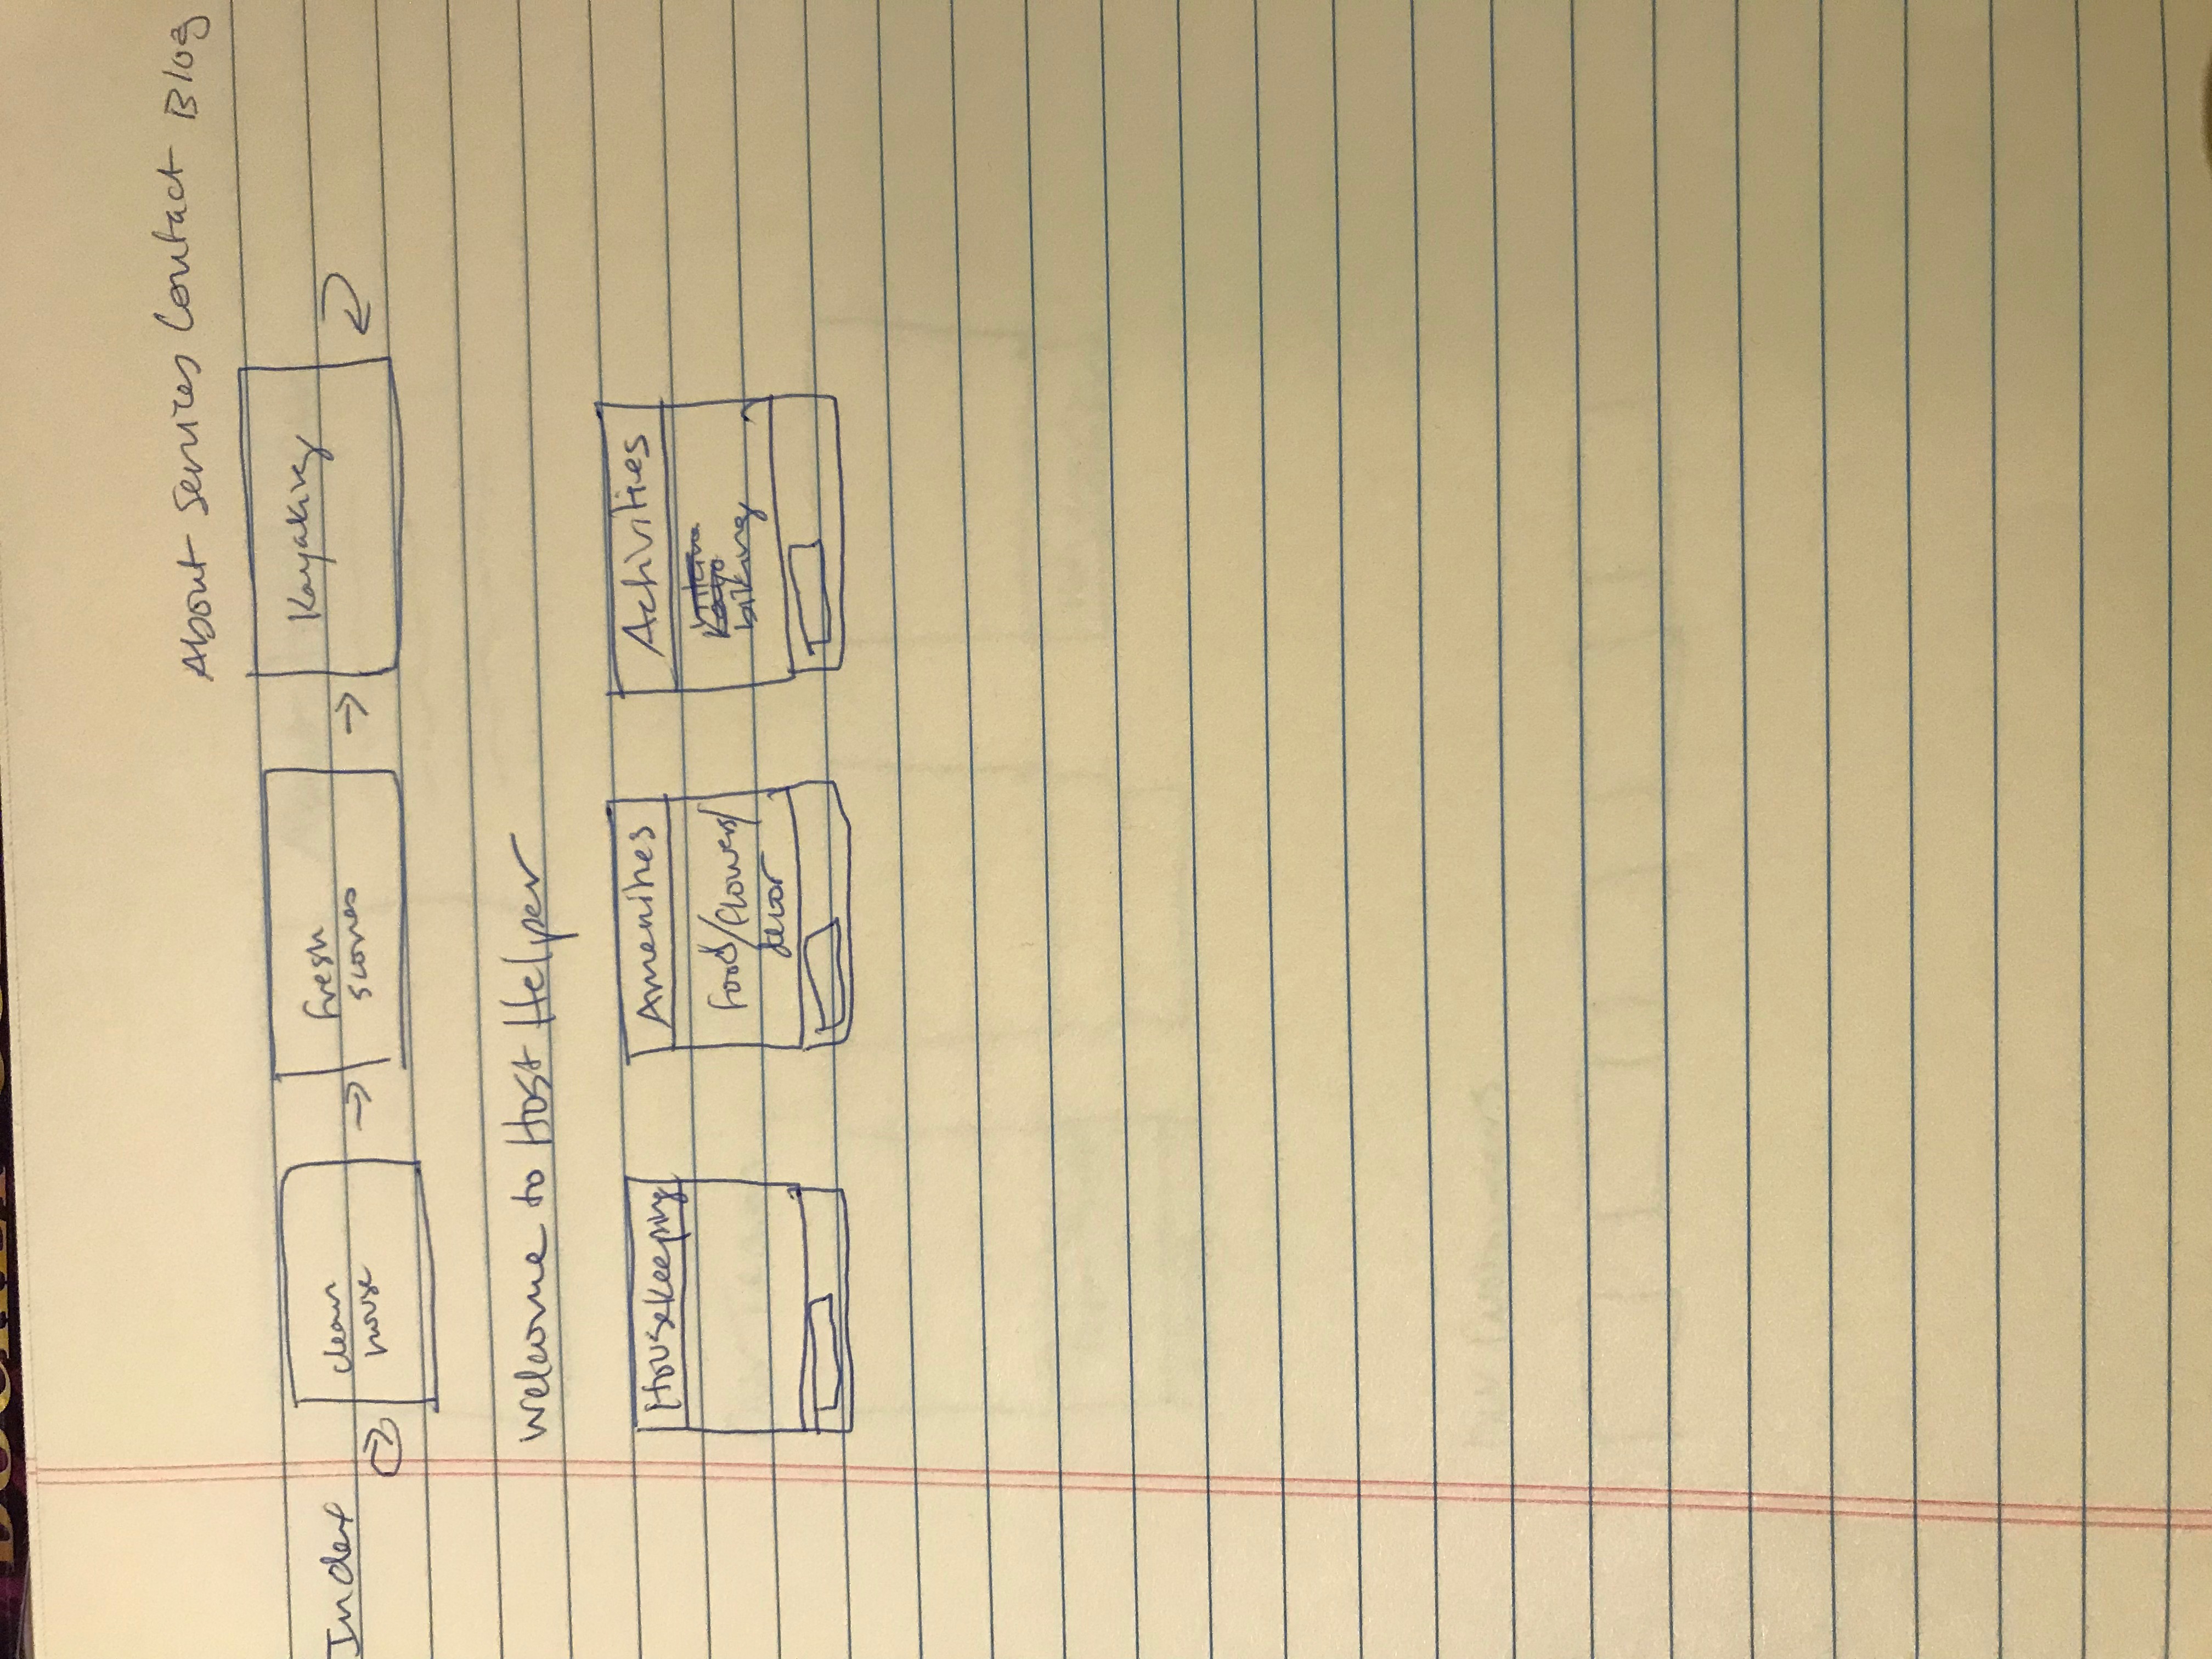 About Services Contact Blog
Index
clean
house
fresh
scones
Kayaking
Welcome to Host Helper
Housekeeping
Amenities
food/flowers/
decor
Activities
biking